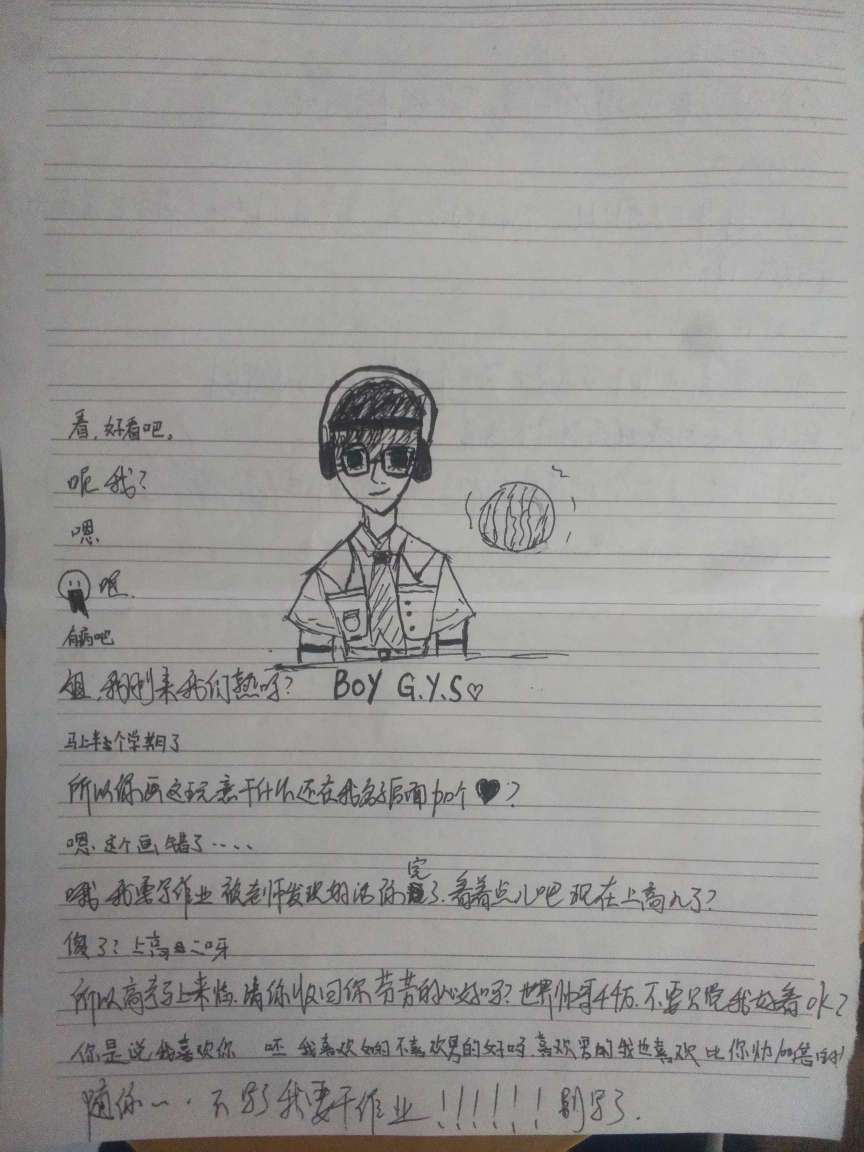 看,好看吧。
呢我?
嗯
呃.
有病吧
姐,我刚来我们熟吗?
BOY G.Y.S♡
马上半个学期了
所以你画这玩意干什么还在我名字后面加个♥?
嗯.这个画错了....
哦 我要写作业 被老师发现的话你完了.看着点儿吧 现在上高几了?
傻了?上高二呀
所以高考马上来临.请你收回你芳芳的心好吗?世界帅哥千千万.不要只觉我好看OK?
你是说,我喜欢你 呸 我喜欢女的不喜欢男的好吗 喜欢男的我也喜欢比你帅的
随你...不写了我要干作业!!!!!!别写了.